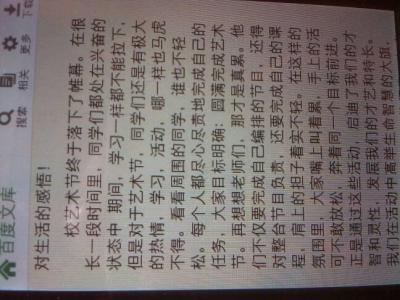 百度文库
搜索
相关
更多
下载
对生活的感悟！
校艺术节终于落下了帷幕。在很
长一段时间里，同学们都处在兴奋的
状态中 期间，学习一样都不能拉下，
但是对于艺术节，同学们还是有极大
的热情，学习，活动，哪一样也马虎
不得。看看周围的同学，谁也不轻
松。每个人都尽心尽责地完成自己的
任务 大家目标明确：圆满完成艺术
节。再想想老师们，那才是真累。他
们不仅要完成自己编排的节目，还得
对整台节目负责，还要完成自己的课
程，肩上的担子着实不轻。在这样的
氛围里 大家嘴上叫着累，手上的活
可不敢放松，奔着同一个目标前进。
正是通过这些活动，启迪了我们的才
智和灵性 发展我们的才艺和特长。
我们在活动中高举生命智慧的大旗，